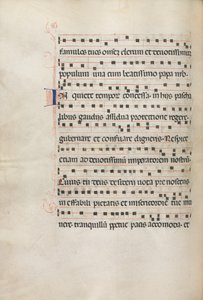 famulos tuos omnez clerum et deuotissimum
populum una cum beatissimo papa nro
quiete temporum concessa in his pascha
libus gaudiis assidua protectione regere
gubernare et conseruare digneris Respice
etiam ad deuotissimum imperatorem nostrum
Cuius tu deus desiderii uota pre noscens
in effabili pietatis et misericordie tue mu
nere tranquillum ppetue pacis accomoda et